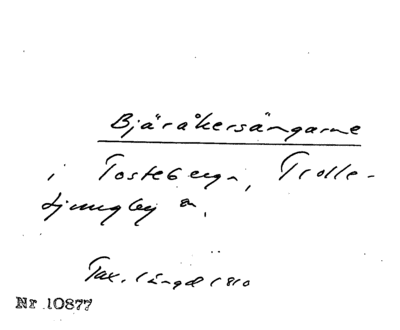 Bjäråkersängarne
i Tosteberga, Trolle-
Ljungby sn.
Tax. längd 1810
Nr 10877